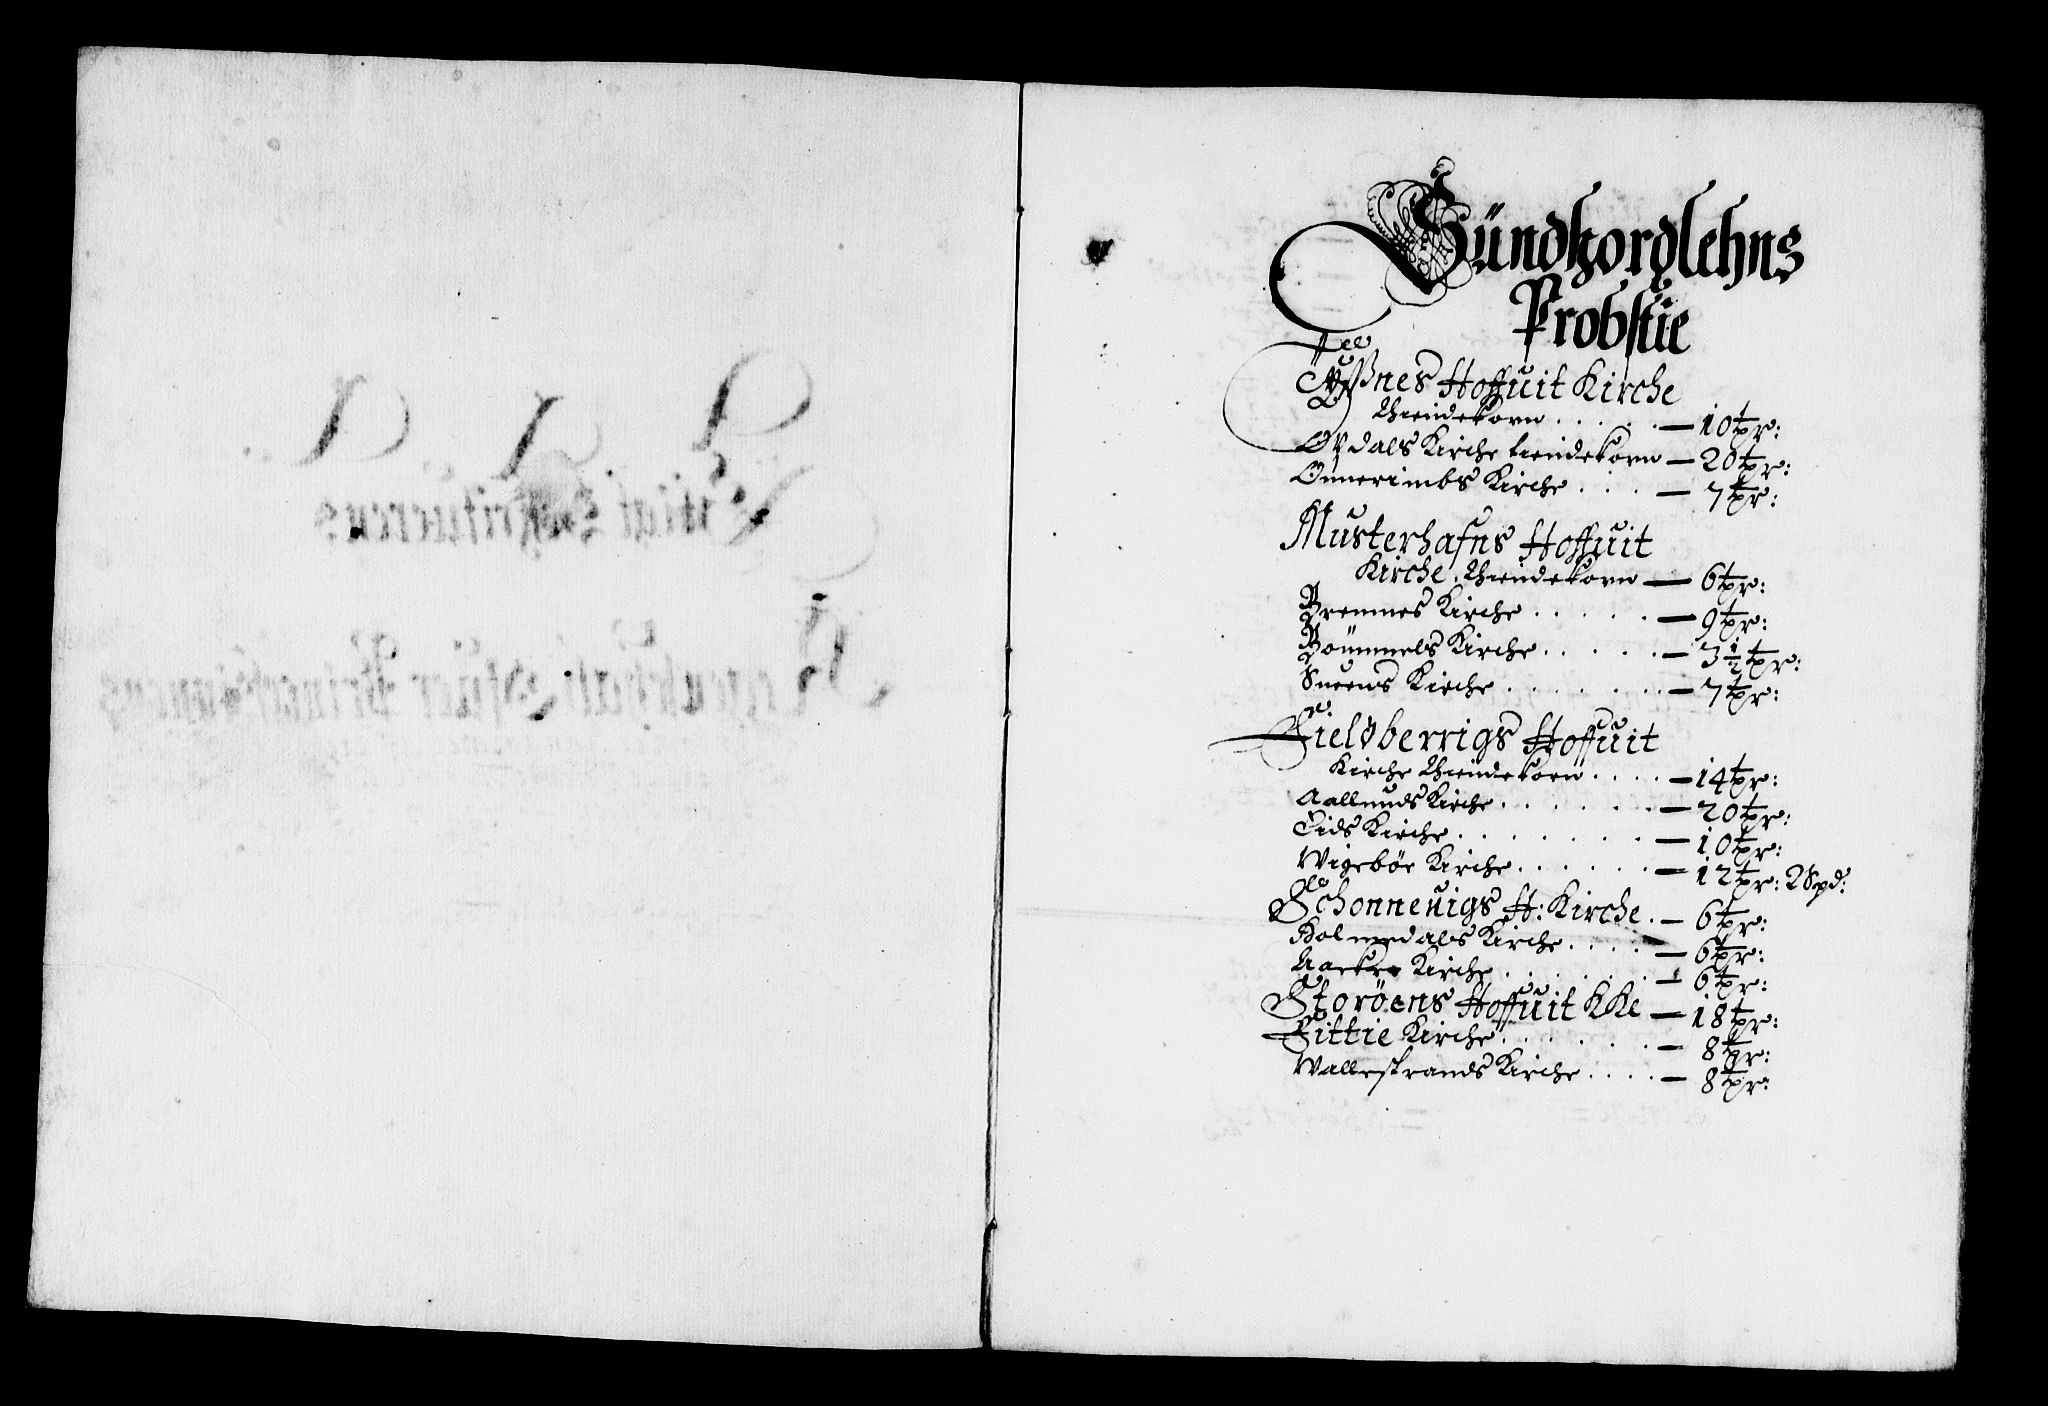 Sündhordlehns
Probstie
Tÿßnes Hoffuit Kirche
thiendekorn . . . . . — 10 tpr:
Opdals Kirche tiendekorn — 20 tpr:
Onnerimbs Kirche . . . . — 7 tpr:
Musterhafns Hoffuit
Kirche thiendekorn — 6 tpr:
Bremnes Kirche . . . . . — 9 tpr:
Bommels Kirche . . . . . — 3½ tpr:
Sueens Kirche . . . . . . . — 7 tpr:
Fieldberrigs Hoffuit
Kirche thiendekorn . . . . — 14 tpr:
Aallunds Kirche . . . . . . — 20 tpr:
Eids Kirche . . . . . . . — 10 tpr:
Wigebøe Kirche . . . . . . — 12 tpr: 2 Spd:
Schonneuigs H: Kirche . — 6 tpr:
Holmedals Kirche . . . . — 6 tpr:
Aackre Kirche . . . . . . — 6 tpr:
Storöens Hoffuit KKe — 18 tpr:
Fittie Kirche . . . . . . — 8 tpr:
Wallestrands Kirche . . . . — 8 tpr: